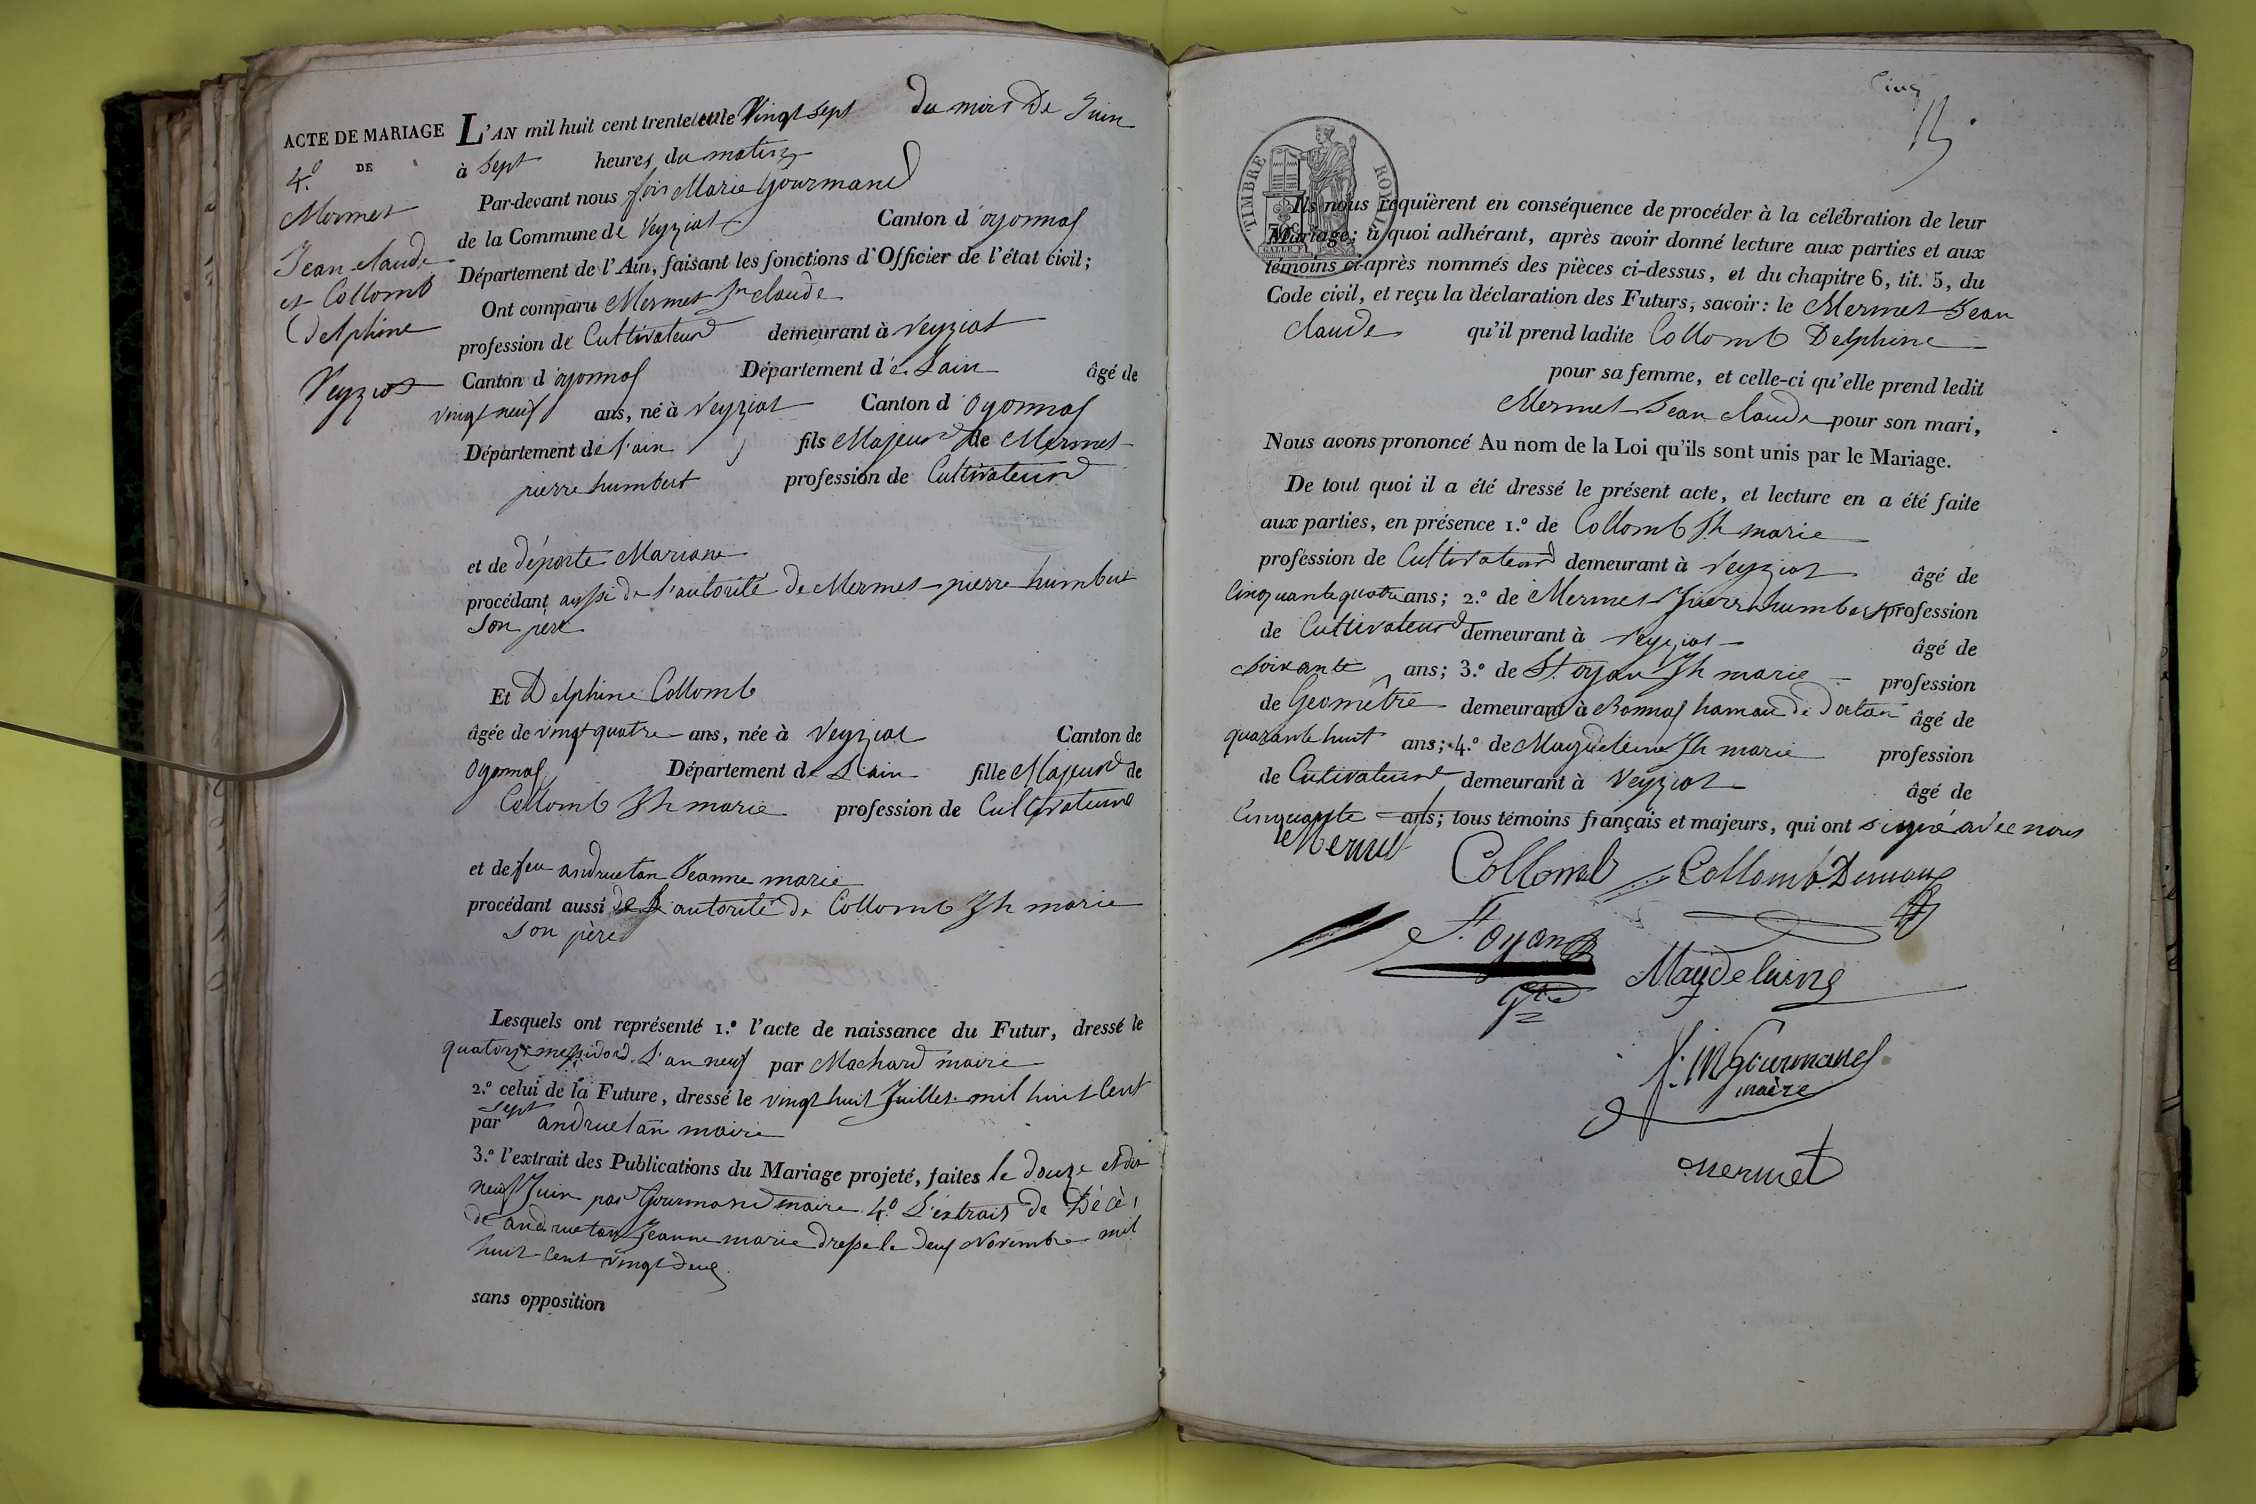 ACTE DE MARIAGE
4.º DE
Mermet
Jean claude
et Collomb
Delphine
Veyziat
L'AN mil huit cent trente et le Vingt sept du mois De Juin
à Sept heures du matin
Par-devant nous Marie Gourmand
de la Commune de Veyziat Canton d'oyonnax
Département de l'Ain, faisant les fonctions d'Officier de l'état civil;
Ont comparu Mermet Jn claude
profession de Cultivateur demeurant à Veyziat
Canton d'oyonnax Département de Lain âgé de
vingt neuf ans, né à Veyziat Canton d Oyonnax
Département de l'ain fils Majeur de Mermet
pierre humbert profession de Cultivateur
et de déporte Mariane
procédant aussi de l'autorité de Mermet pierre humbert
Son pere
Et Delphine Collomb
âgée de vingt quatre ans, née à Veyziat Canton de
Oyonnax Département de Lain fille Majeur de
Collomb Jh marie profession de Cultivateur
et de feu andruetan Jeanne marie
procédant aussi de autorité de Collomb Jh marie
son père
Lesquels ont représenté 1.º l'acte de naissance du Futur, dressé le
quatorze messidord L'an neuf par Machard maire
2.º celui de la Future, dressé le vingt huit Juillet mil huit Cent
sept
par andruetan maire
3.º l'extrait des Publications du Mariage projeté, faites le douze et dix
neuf Juin par Gourmand maire 4.º L'extrait de Décès
de andruetan Jeanne marie dressé le deux Novembre mil
huit Cent vingt deux
sans opposition
Cinq
TIMBRE ROYAL
Ils nous requièrent en conséquence de procéder à la célébration de leur
Mariage; à quoi adhérant, après avoir donné lecture aux parties et aux
témoins ci-après nommés des pièces ci-dessus, et du chapitre 6, tit. 5, du
Code civil, et reçu la déclaration des Futurs, savoir: le Mermet Jean
claude qu'il prend ladite Collomb Delphine
pour sa femme, et celle-ci qu'elle prend ledit
Mermet Jean claude pour son mari,
Nous avons prononcé Au nom de la Loi qu'ils sont unis par le Mariage.
De tout quoi il a été dressé le présent acte, et lecture en a été faite
aux parties, en présence 1.º de Collomb Jh marie
profession de Cultivateur demeurant à Veyziat âgé de
Cinquante quatre ans; 2.º de Mermet Pierre humbert profession
de Cultivateur demeurant à Veyziat âgé de
Soixante ans; 3.º de St. oyan Jh marie profession
de Geomêtre demeurant à Bonnas hamau de dortan âgé de
quarante huit ans; 4.º de Maydeleine Jh marie profession
de Cultivateur demeurant à Veyziat âgé de
Cinquante ans; tous témoins français et majeurs, qui ont signé avec nous
le Mermet
Collomb Collomb
St. oyan
Maydelaine
Gourmand
maère
mermet